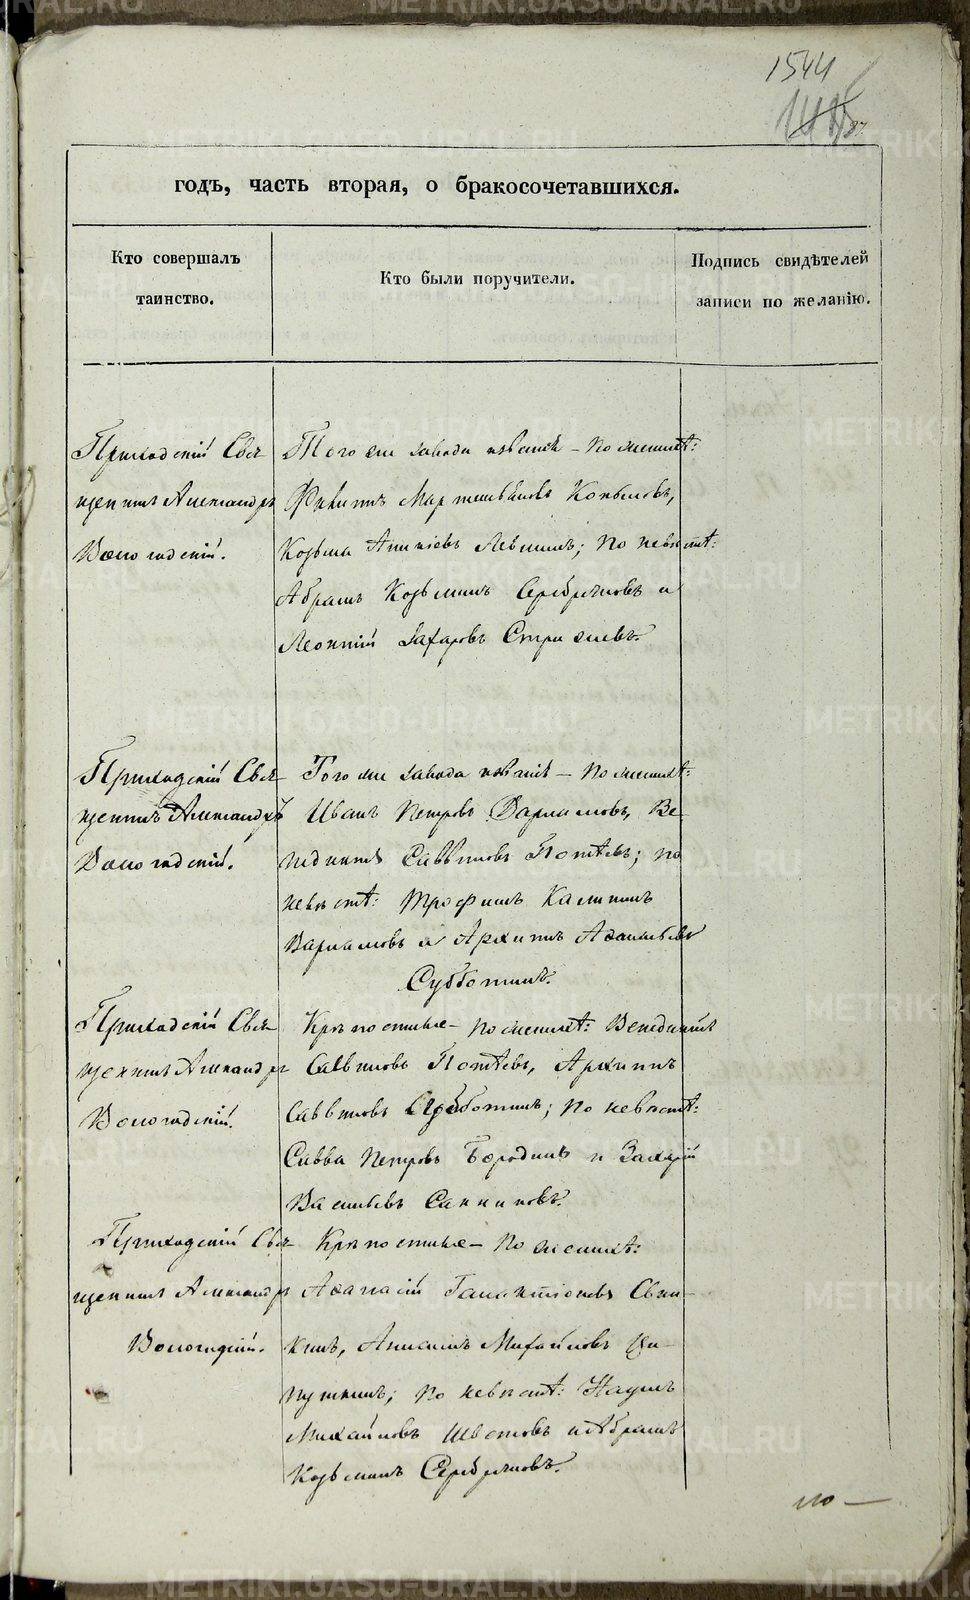 1544
годъ, часть вторая, о бракосочетавшихся.
Кто совершалъ
таинство.
Кто были поручители.
Подпись свидѣтелей
записи по желанію.
Приходскій Свя-
щенникъ Александръ
Вологодскій.
Того же завода – По женихѣ:
Мартемьяновъ Копыловъ,
Козьма Аникіевъ Левшинъ; по невѣстѣ:
Абрамъ Козьминъ Серебряковъ и
Леонтій Захаровъ Стрижевъ.
Приходскій Свя-
щенникъ Александръ
Вологодскій.
Того же завода – По женихѣ:
Иванъ Петровъ Варламовъ, Ве-
недиктъ Саввиновъ Потѣевъ; по
невѣстѣ: Трофимъ Калининъ
Варламовъ и Архипъ Афанасьевъ
Субботинъ.
Приходскій Свя-
щенникъ Александръ
Вологодскій.
Крѣпостные – По женихѣ: Венедиктъ
Саввиновъ Потѣевъ, Архипъ
Саввиновъ Субботинъ; по невѣстѣ:
Савва Петровъ Бородинъ и Захарій
Васильевъ Санниковъ.
Приходскій Свя-
щенникъ Александръ
Вологодскій.
Крѣпостные – По женихѣ:
Афанасій Галактіоновъ Сви-
кинъ, Анисимъ Михайловъ Ци-
пушкинъ; по невѣстѣ: Наумъ
Михайловъ Швецовъ и Абрамъ
Козьминъ Серебряковъ.
по –
METRIKI.GASO-URAL.RU